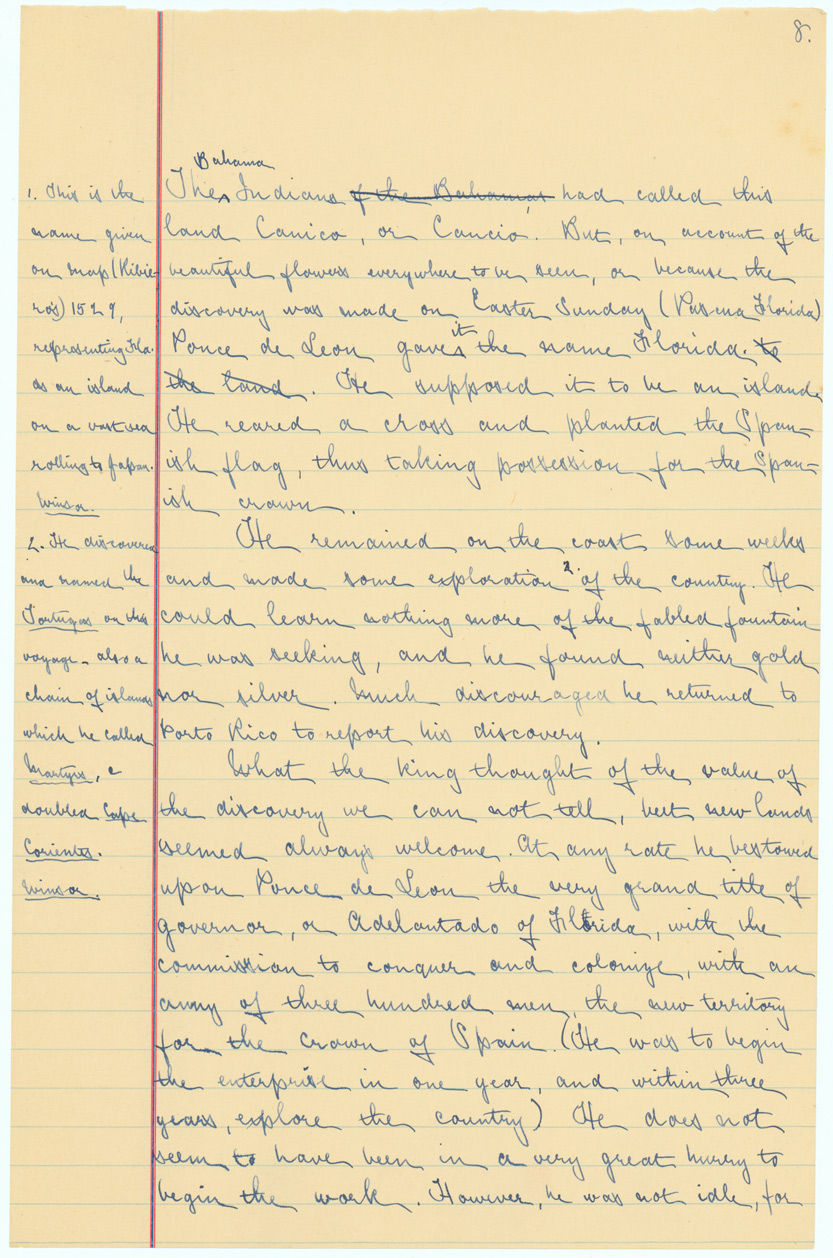 8.
Bahama
The Indians of the Bahamas had called this
land Canico, or Cancio. But, on account of the
beautiful flowers everywhere to be seen, or because the
discovery was made on Easter Sunday (Pascua Florida)
it
Ponce de Leon gave the name Florida. to
the land. He supposed it to be an island.
He reared a cross and planted the Span-
ish flag, thus taking possession for the Span-
ish crown.
He remained on the coast some weeks
and made some exploration 2. of the country. He
could learn nothing more of the fabled fountain
he was seeking, and he found neither gold
nor silver. Much discouraged he returned to
Porto Rico to report his discovery.
What the king thought of the value of
the discovery we can not tell, but new lands
seemed always welcome. At any rate he bestowed
upon Ponce de Leon the very grand title of
governor, or Adelantado of Florida, with the
commission to conquer and colonize, with an
army of three hundred men, the new territory
for the crown of Spain. (He was to begin
the enterprise in one year, and within three
years, explore the country) He does not
seem to have been in a very great hurry to
begin the work. However, he was not idle, for
1. This is the
name given
on map (Ribie-
ro's) 1529,
representing Fla.
as an island
on a vast sea
rolling to Japan.
Winsor.
2. He discovered
and named the
Tortugas on this
voyage - also a
chain of islands
which he called
Martyrs, &
doubled Cape
Corientes.
Winsor.